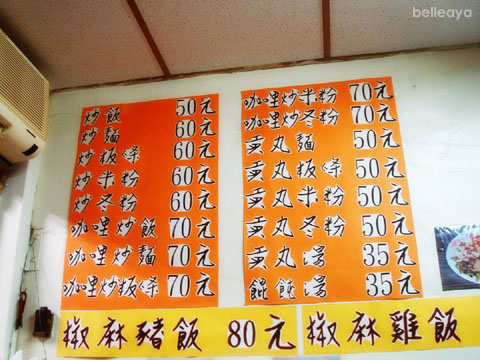 belleaya
炒飯 50元
炒麵 60元
炒粄條 60元
炒米粉 60元
炒冬粉 60元
咖哩炒飯 70元
咖哩炒麵 70元
咖哩炒粄條 70元
咖哩炒米粉 70元
咖哩炒冬粉 70元
貢丸麵 50元
貢丸粄條 50元
貢丸米粉 50元
貢丸冬粉 50元
貢丸湯 35元
餛飩湯 35元
椒麻豬飯 80元
椒麻雞飯